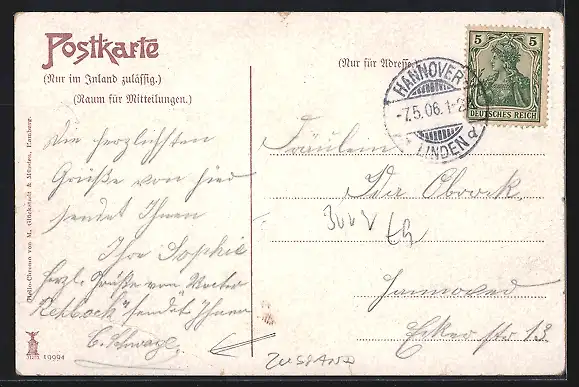 Postkarte
(Nur im Inland zulässig.)
(Raum für Mitteilungen.)
(Nur für Adresse.)
HANNOVER
-7.5.06.1-2
LINDEN
5 5
DEUTSCHES REICH
Die herzlichsten
Grüße von hier
sendet Ihnen
Ihre Sophie
Herzl. Grüße von
Rehbock sendet Ihnen
Fräulein
Hannover
str 13
ZUSTAND
Helio-Chromo von M. Glückstadt & Münden, Hamburg.
19994